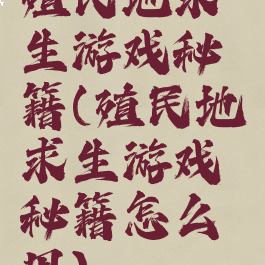 殖民地求
生游戏秘
籍(殖民地
求生游戏
秘籍怎么
用)